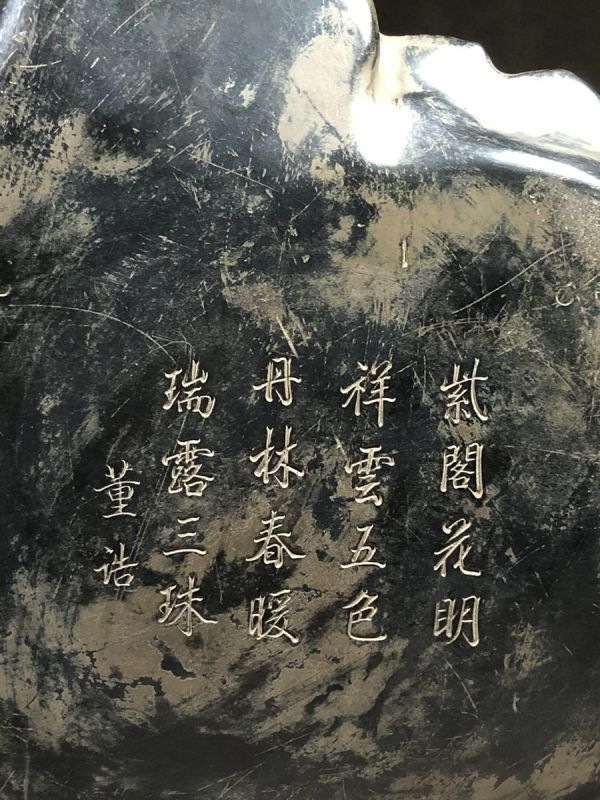 紫閣花明
祥雲五色
丹林春暖
瑞露三珠
董誥